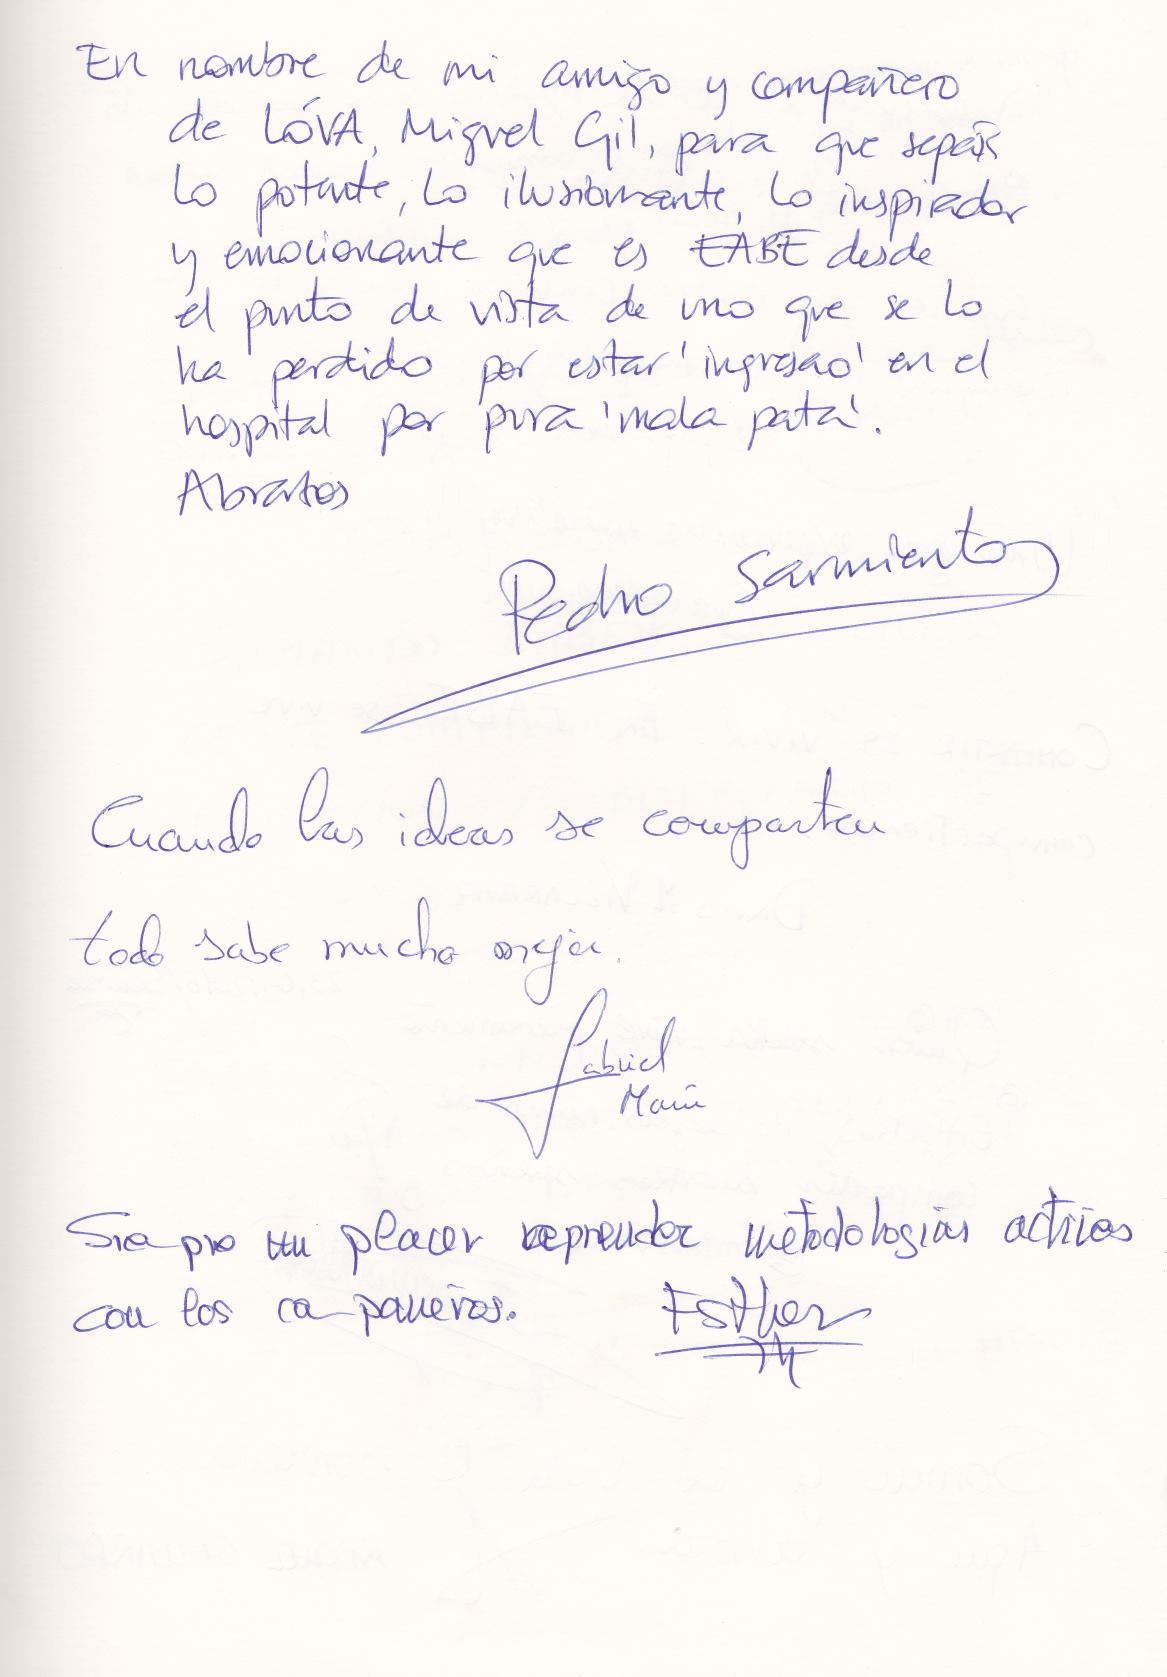 En nombre de mi amigo y compañero
de LÓVA, Miguel Gil, para que sepáis
lo potente, lo ilusionante, lo inspirador
y emocionante que es EABE desde
el punto de vista de uno que se lo
ha perdido por estar 'ingresao' en el
hospital por pura 'mala pata'.
Abrazos
Pedro Sarmiento
Cuando las ideas se comparten
todo sabe mucho mejor.
Gabriel
Marín
Siempre un placer reaprender metodologías activas
con los compañeros. Esther